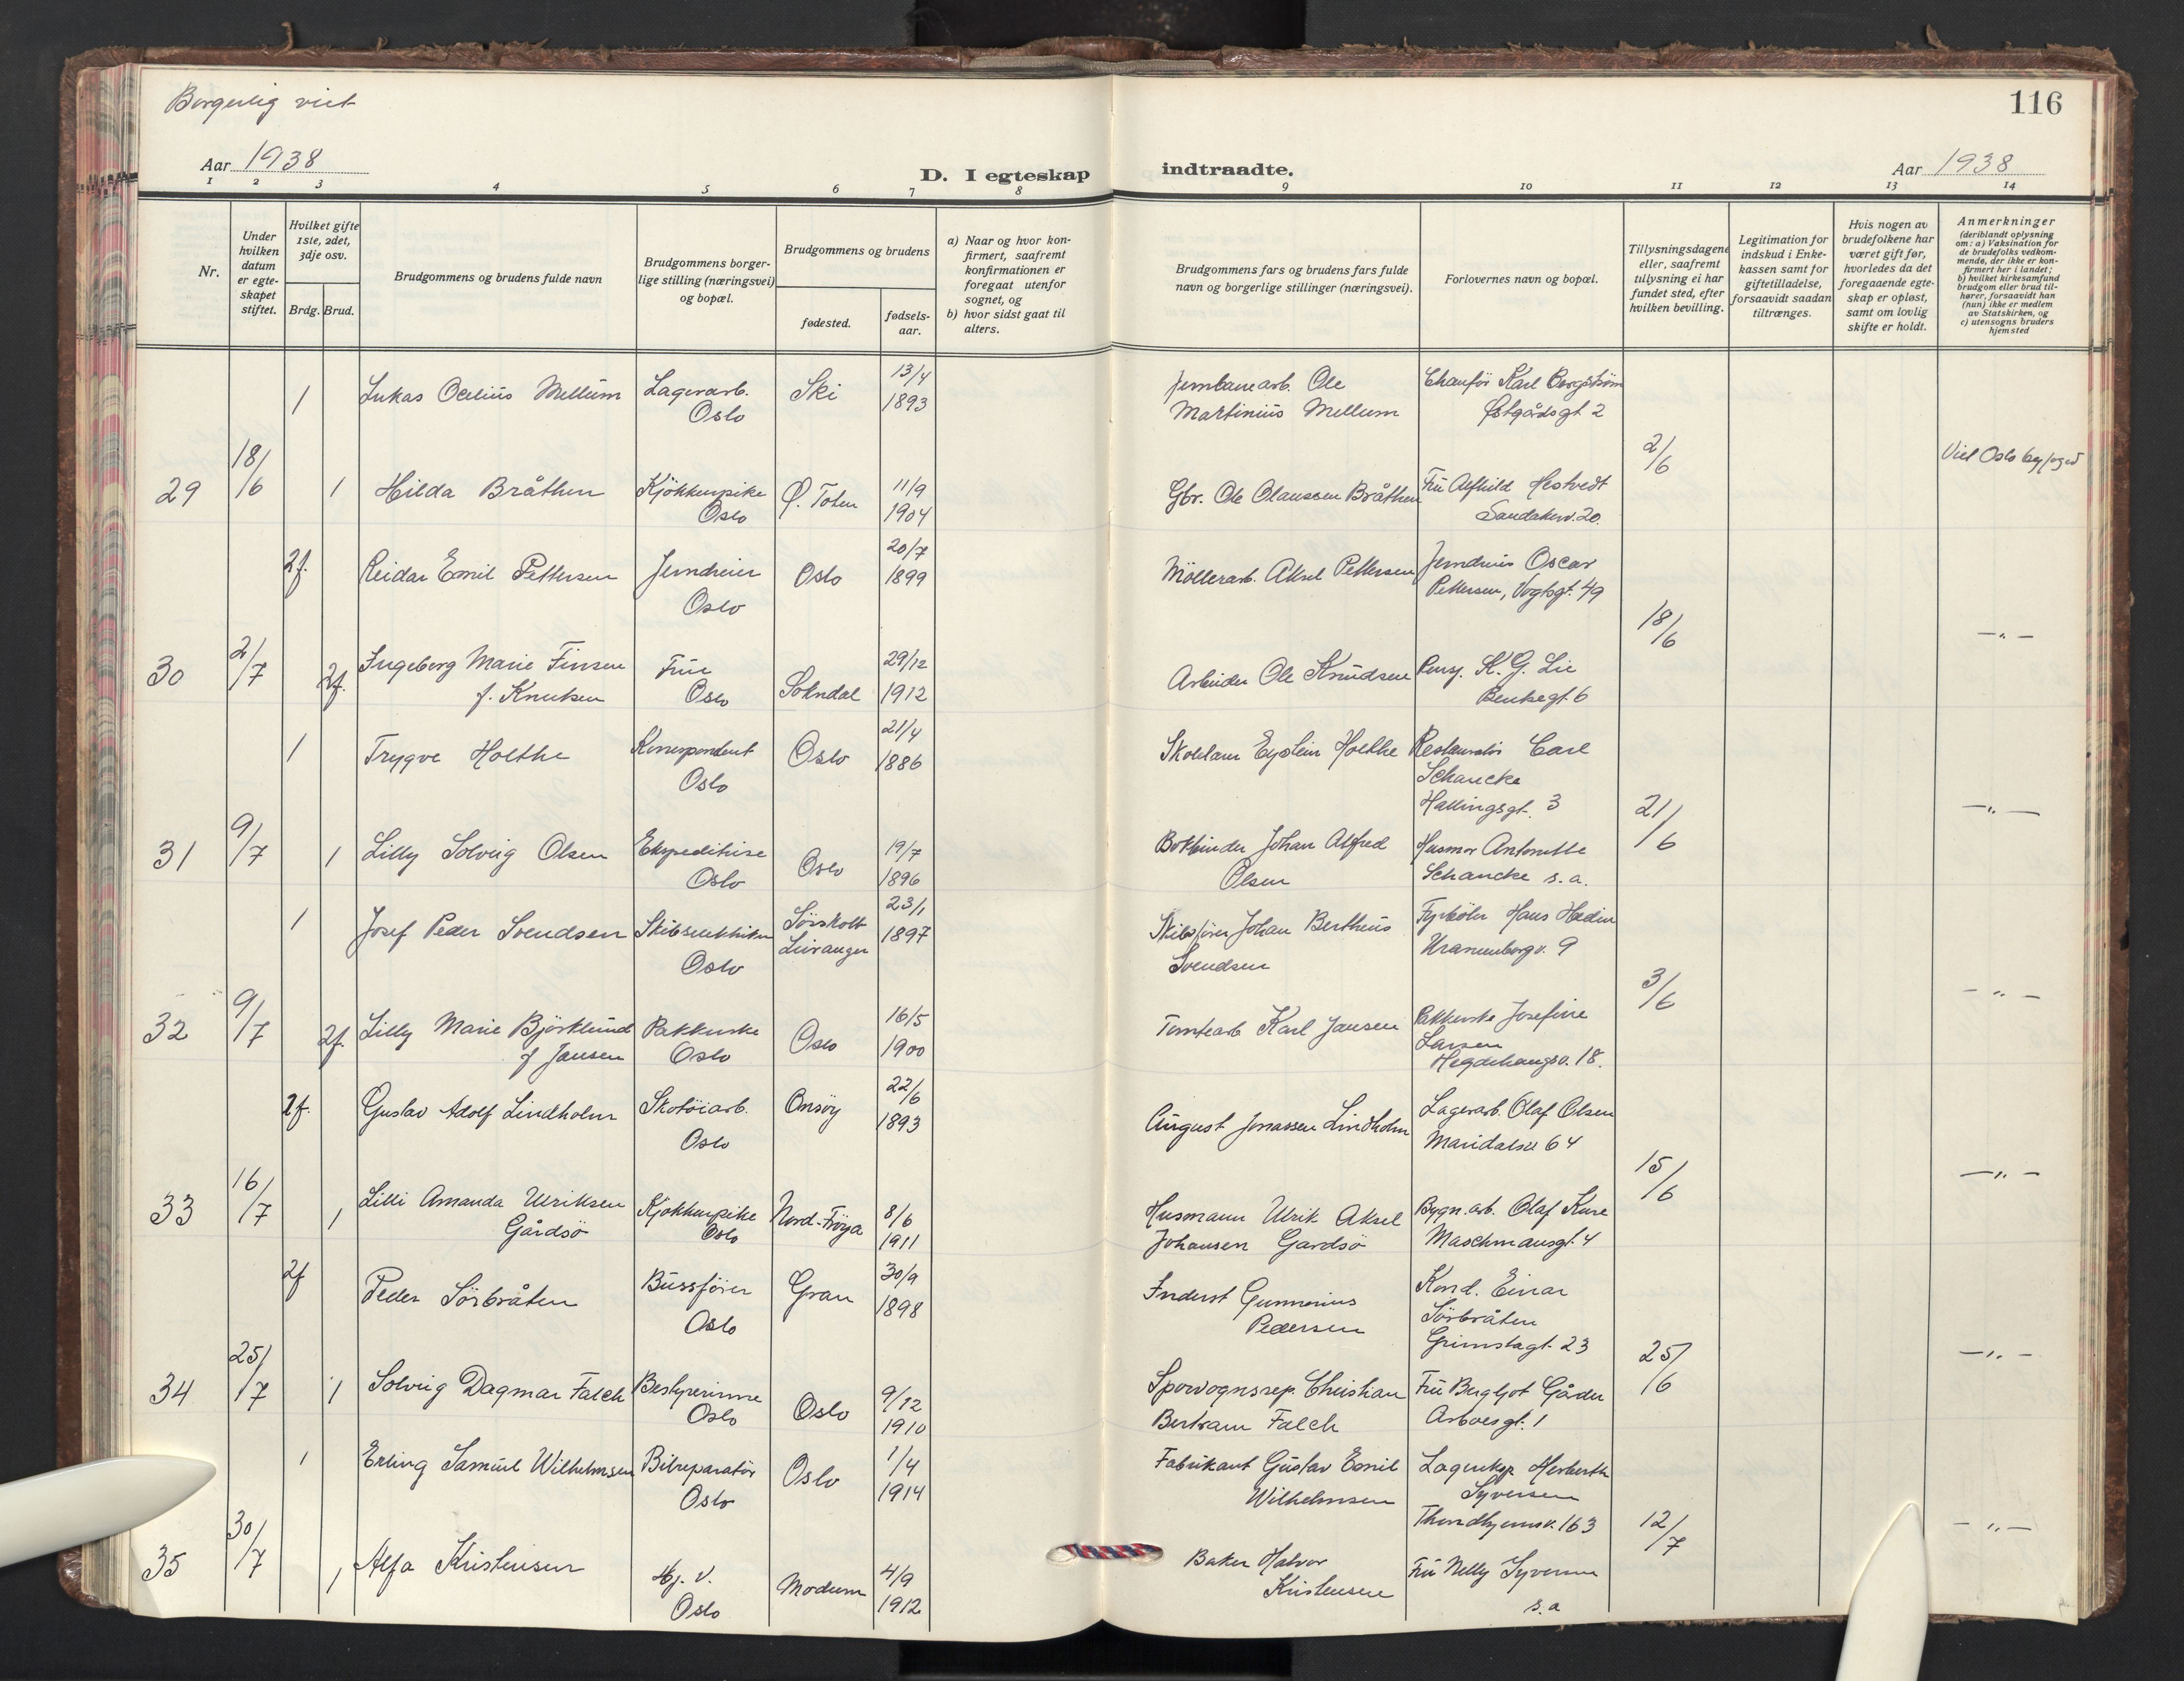 Borgerlig viet
116
Aar 1938
D. I egteskap
indtraadte.
Aar 1938
1 2 3 4 5 6 7 8 9 10 11 12 13 14
Nr.
Under hvilken datum er egte-skapet stiftet.
Hvilket gifte 1ste, 2det, 3dje osv.
Brdg. Brud.
Brudgommens og brudens fulde navn
Brudgommens borger-lige stilling (næringsvei) og bopæl.
Brudgommens og brudens
fødested.
fødsels-aar.
a) Naar og hvor kon-firmert, saafremt konfirmationen er foregaat utenfor sognet, og
b) hvor sidst gaat til alters.
Brudgommens fars og brudens fars fulde navn og borgerlige stillinger (næringsvei).
Forlovernes navn og bopæl.
Tillysningsdagene eller, saafremt tillysning ei har fundet sted, efter hvilken bevilling.
Legitimation for indskud i Enke-kassen samt for giftetilladelse, forsaavidt saadan tiltrænges.
Hvis nogen av brudefolkene har været gift før, hvorledes da det foregaaende egte-skap er opløst, samt om lovlig skifte er holdt.
Anmerkninger
(deriblandt oplysning om: a) Vaksination for de brudefolks vedkom-mende, der ikke er kon-firmert her i landet; b) hvilket kirkesamfund brudgom eller brud til-hører, forsaavidt han (hun) ikke er medlem av Statskirken, og c) utensogns bruders hjemsted
1 Lukas Ocelius Mellum Lagerarb. Oslo Ski 13/4 1893 Jernbanearb. Ole Martinius Mellum Chaufför Karl Bergström Østgårdsgt 2
29 18/6 1 Hilda Bråthen Kjökkenpike Oslo Ø. Toten 11/9 1904 Gbr. Ole Olaussen Bråthen Fru Alfhild Hestvedt Sandakerv. 20. 2/6 Viet Oslo byfoged
2f. Reidar Emil Pettersen Jerndreier Oslo Oslo 20/7 1899 Möllerarb. Aksel Pettersen Jerndreier Oscar Pettersen, Vogtsgt. 49
30 2/7 2f. Ingeborg Marie Finsen f. Knutsen Frue Oslo Sokndal 29/12 1912 Arbeider Ole Knudsen Pensj. K. G. Lie Benkegt. 6 18/6 —"—
1 Trygve Holthe Korrespondent Oslo Oslo 21/4 1886 Eystein Holthe Restauratör Carl Schancke Hallingsgt. 3
31 9/7 1 Lilly Solveig Olsen Ekspeditrise Oslo Oslo 19/7 1896 Bokbinder Johan Alfred Olsen Husmor Antonette Schancke s.a. 21/6 —"—
1 Josef Peder Svendsen Oslo Leiranger 23/1 1897 Skibsförer Johan Bertheus Svendsen Fyrböter Hans Uranienborgv. 9
32 9/7 2f. Lilly Marie Björklund f Jansen Pakkerske Oslo Oslo 16/5 1900 Tomtearb Karl Jansen Pakkerske Josefine Larsen Hegdehaugsv. 18. 3/6 —"—
2f. Gustav Adolf Lindholm Skotöiarb. Oslo Onsöy 22/6 1893 August Jonassen Lindholm Lagerarb. Olaf Olsen Maridalsv 64
33 16/7 1 Lilli Amanda Ulriksen Gårdsö Kjökkenpike Oslo Nord-Fröya 8/6 1911 Husmann Ulrik Aksel Johansen Gardsö Bygn.arb. Olaf Kure Maschmansgt. 4 15/6 —"—
2f Peder Sörbråten Bussförer Oslo Gran 30/9 1898 Inderst Gunnerius Pedersen Kond. Einar Sörbråten Grimstagt. 23
34 25/7 1 Solveig Dagmar Falch Bestyrerinne Oslo Oslo 9/12 1910 Sporvognsrep. Christian Bertram Falch Fru Bergljot Gårder Arboesgt. 1 25/6 —"—
1 Erling Samuel Wilhelmsen Bilreparatör Oslo Oslo 1/4 1914 Fabrikant Gustav Emil Wilhelmsen Lagereksp Herberth Syversen Throndhjemsv. 163
35 30/7 1 Alfa Kristensen Hj. v. Oslo Modum 4/9 1912 Baker Halvor Kristensen Fru Nelly Syversen s.a 12/7 —"—